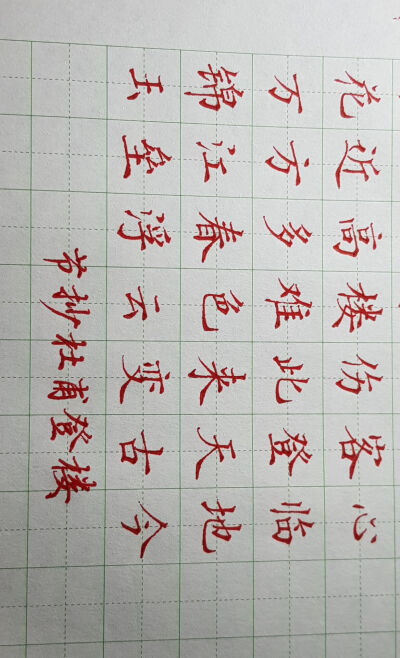 花近高楼伤客心
万方多难此登临
锦江春色来天地
玉垒浮云变古今
节抄杜甫登楼